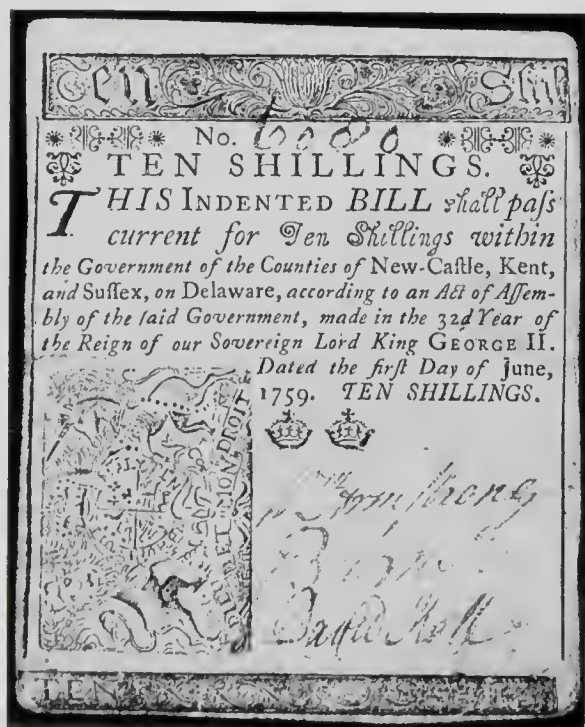 Ten Shil
No. 6080
TEN SHILLINGS.
THIS INDENTED BILL ſhall paſs
current for Ten Shillings within
the Government of the Counties of New-Caſtle, Kent,
and Suſſex, on Delaware, according to an Act of Aſſem-
bly of the ſaid Government, made in the 32d Year of
the Reign of our Sovereign Lord King GEORGE II.
Dated the firſt Day of June,
1759. TEN SHILLINGS.
DIEU ET MON DROIT
Wm Armstrong
David Hall
TEN